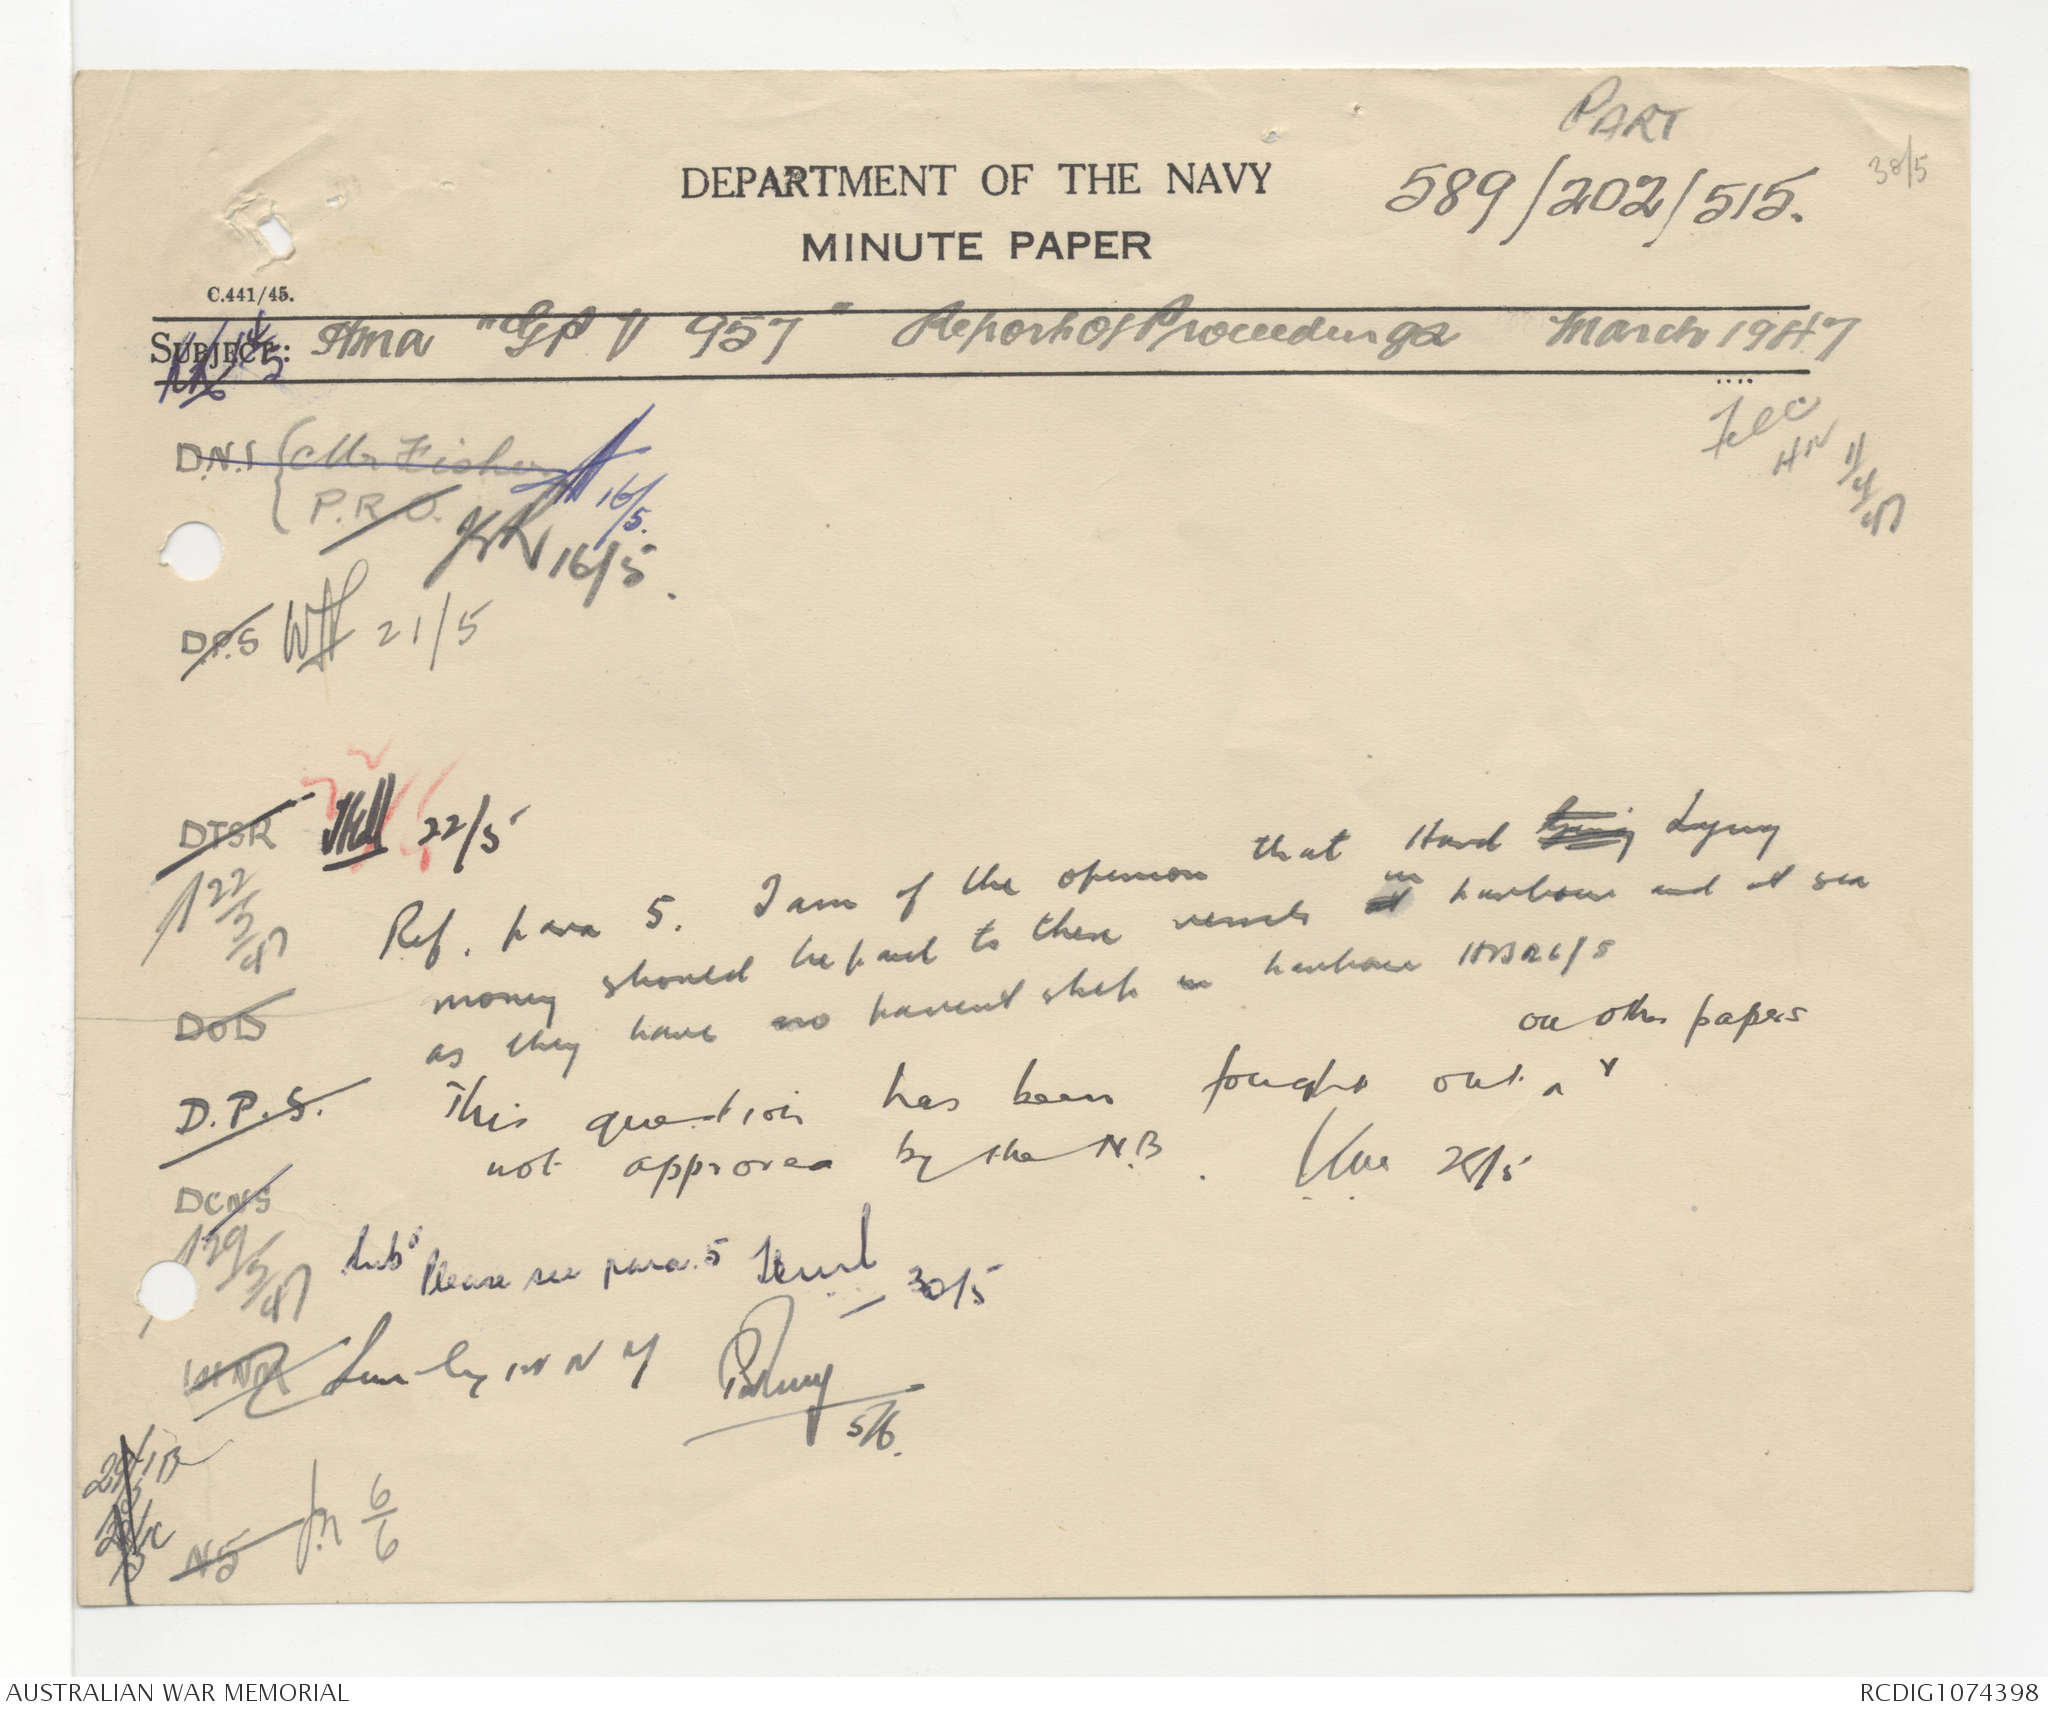 PART
38/5
DEPARTMENT OF THE NAVY
589/202/515.
MINUTE PAPER
C.441/45.
SUBJECT: Hma "GP V 957" Report of Proceedings March 1947
14/5
D.N.I (Mr Fisher 16/5.
P.R.O. 16/5.
HN 11/4/47
D.P.S 21/5
DTSR 22/5
22/5/47
Ref. para 5. I am of the opinion that Hard Lying
money should be paid to these vessels in harbour and at sea
as they have no parent ship in harbour 26/5
DOD
on other papers
D.P.S. This question has been fought out ^ &
not approved by the N.B. 28/5
DCNS
29/5/47
Subs Please see para. 5 30/5
1st NM
Seen by 1st N M
5/6.
N5 6/6
AUSTRALIAN WAR MEMORIAL
RCDIG1074398